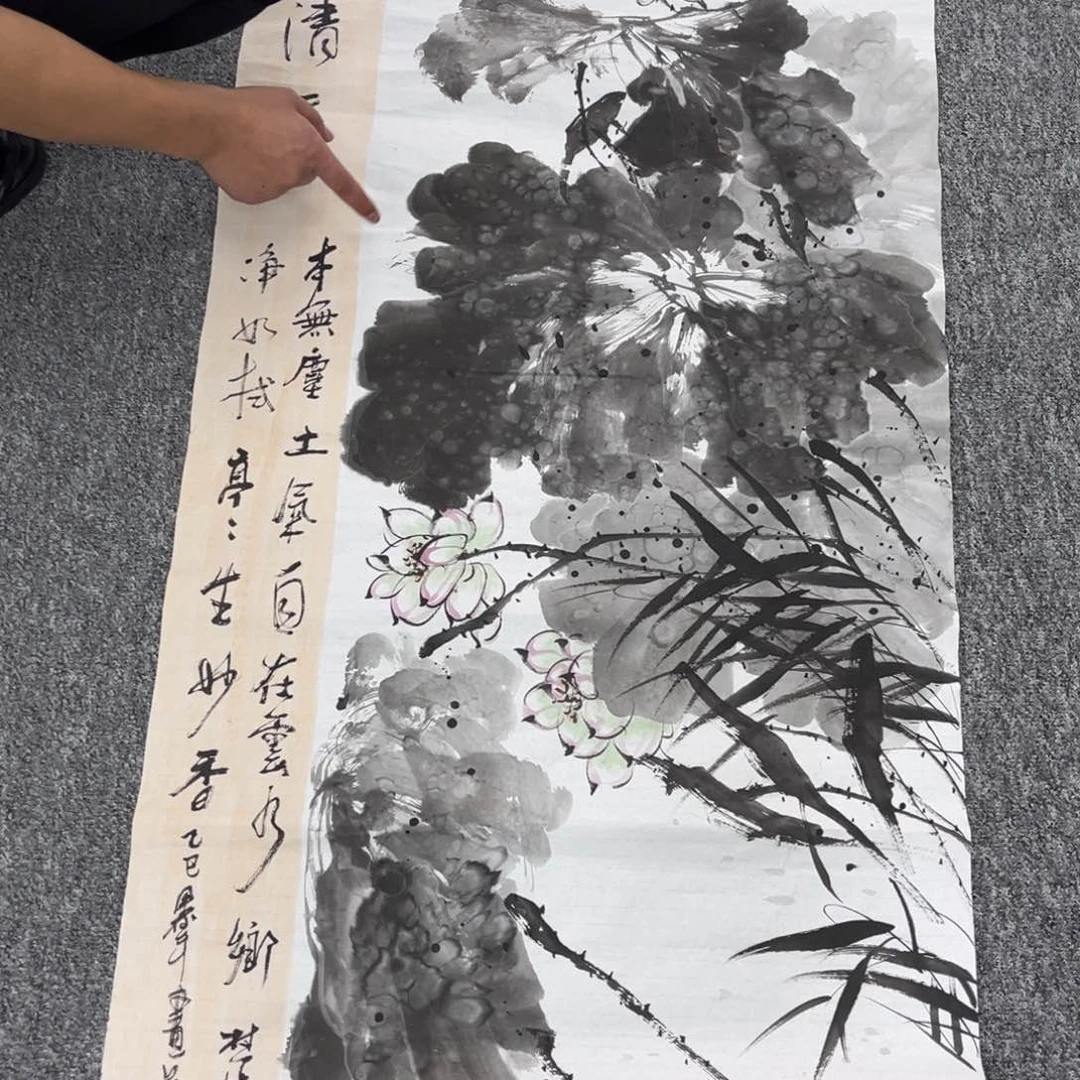 清
本無塵土氣自在雲水鄉
净如拭亭〻生妙香乙巳